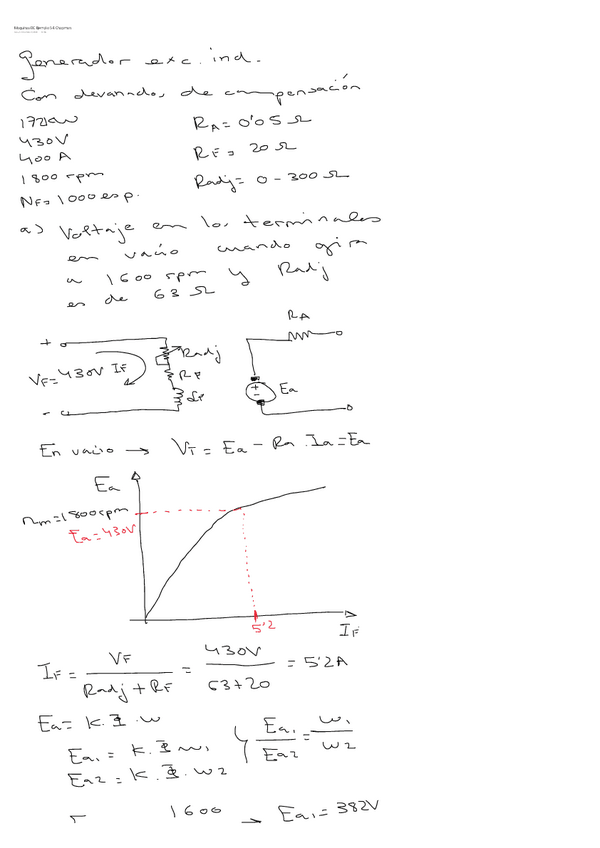 Generador exc. ind.
Con devanados de compensación
172kW
430V
400 A
1800 rpm
NF=1000 esp.
RA=0'05 Ω
RF= 20 Ω
Radj= 0-300 Ω
a) Voltaje en los terminales
en vacio cuando gira
a 1600 rpm y Radj
es de 63 Ω
+
VF=430V IF
-
Radj
RF
LF
RA
+
-
Ea
En vacio → VT = Ea - Ra . Ia = Ea
Ea
nm=1800rpm
Ea=430V
5'2
IF
IF = VF / (Radj + RF) = 430V / (63+20) = 5'2A
Ea= K.Φ.w
Ea1 = K.Φ.w1
Ea2 = K.Φ.w2
Ea1 / Ea2 = w1 / w2
1600 → Ea1=382V